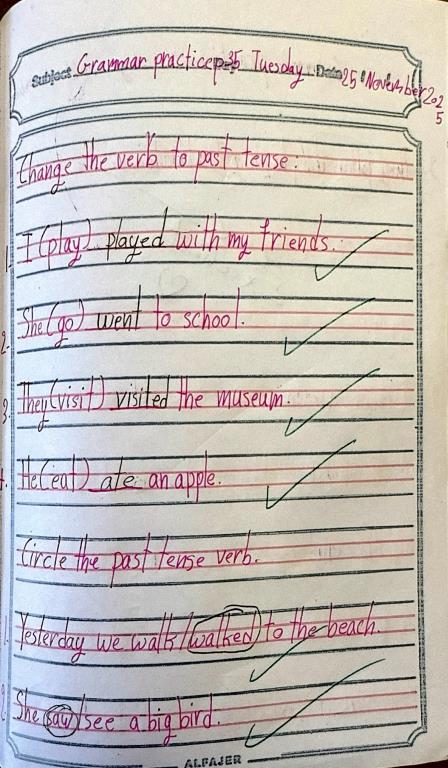 Subject Grammar practice p35 Tuesday Date 25 November 2025
Change the verb to past tense.
1. I (play) played with my friends.
2. She (go) went to school.
3. They (visit) visited the museum.
4. He (eat) ate an apple.
Circle the past tense verb.
1. Yesterday we walk/walked to the beach.
2. She saw/see a big bird.
ALFAJER